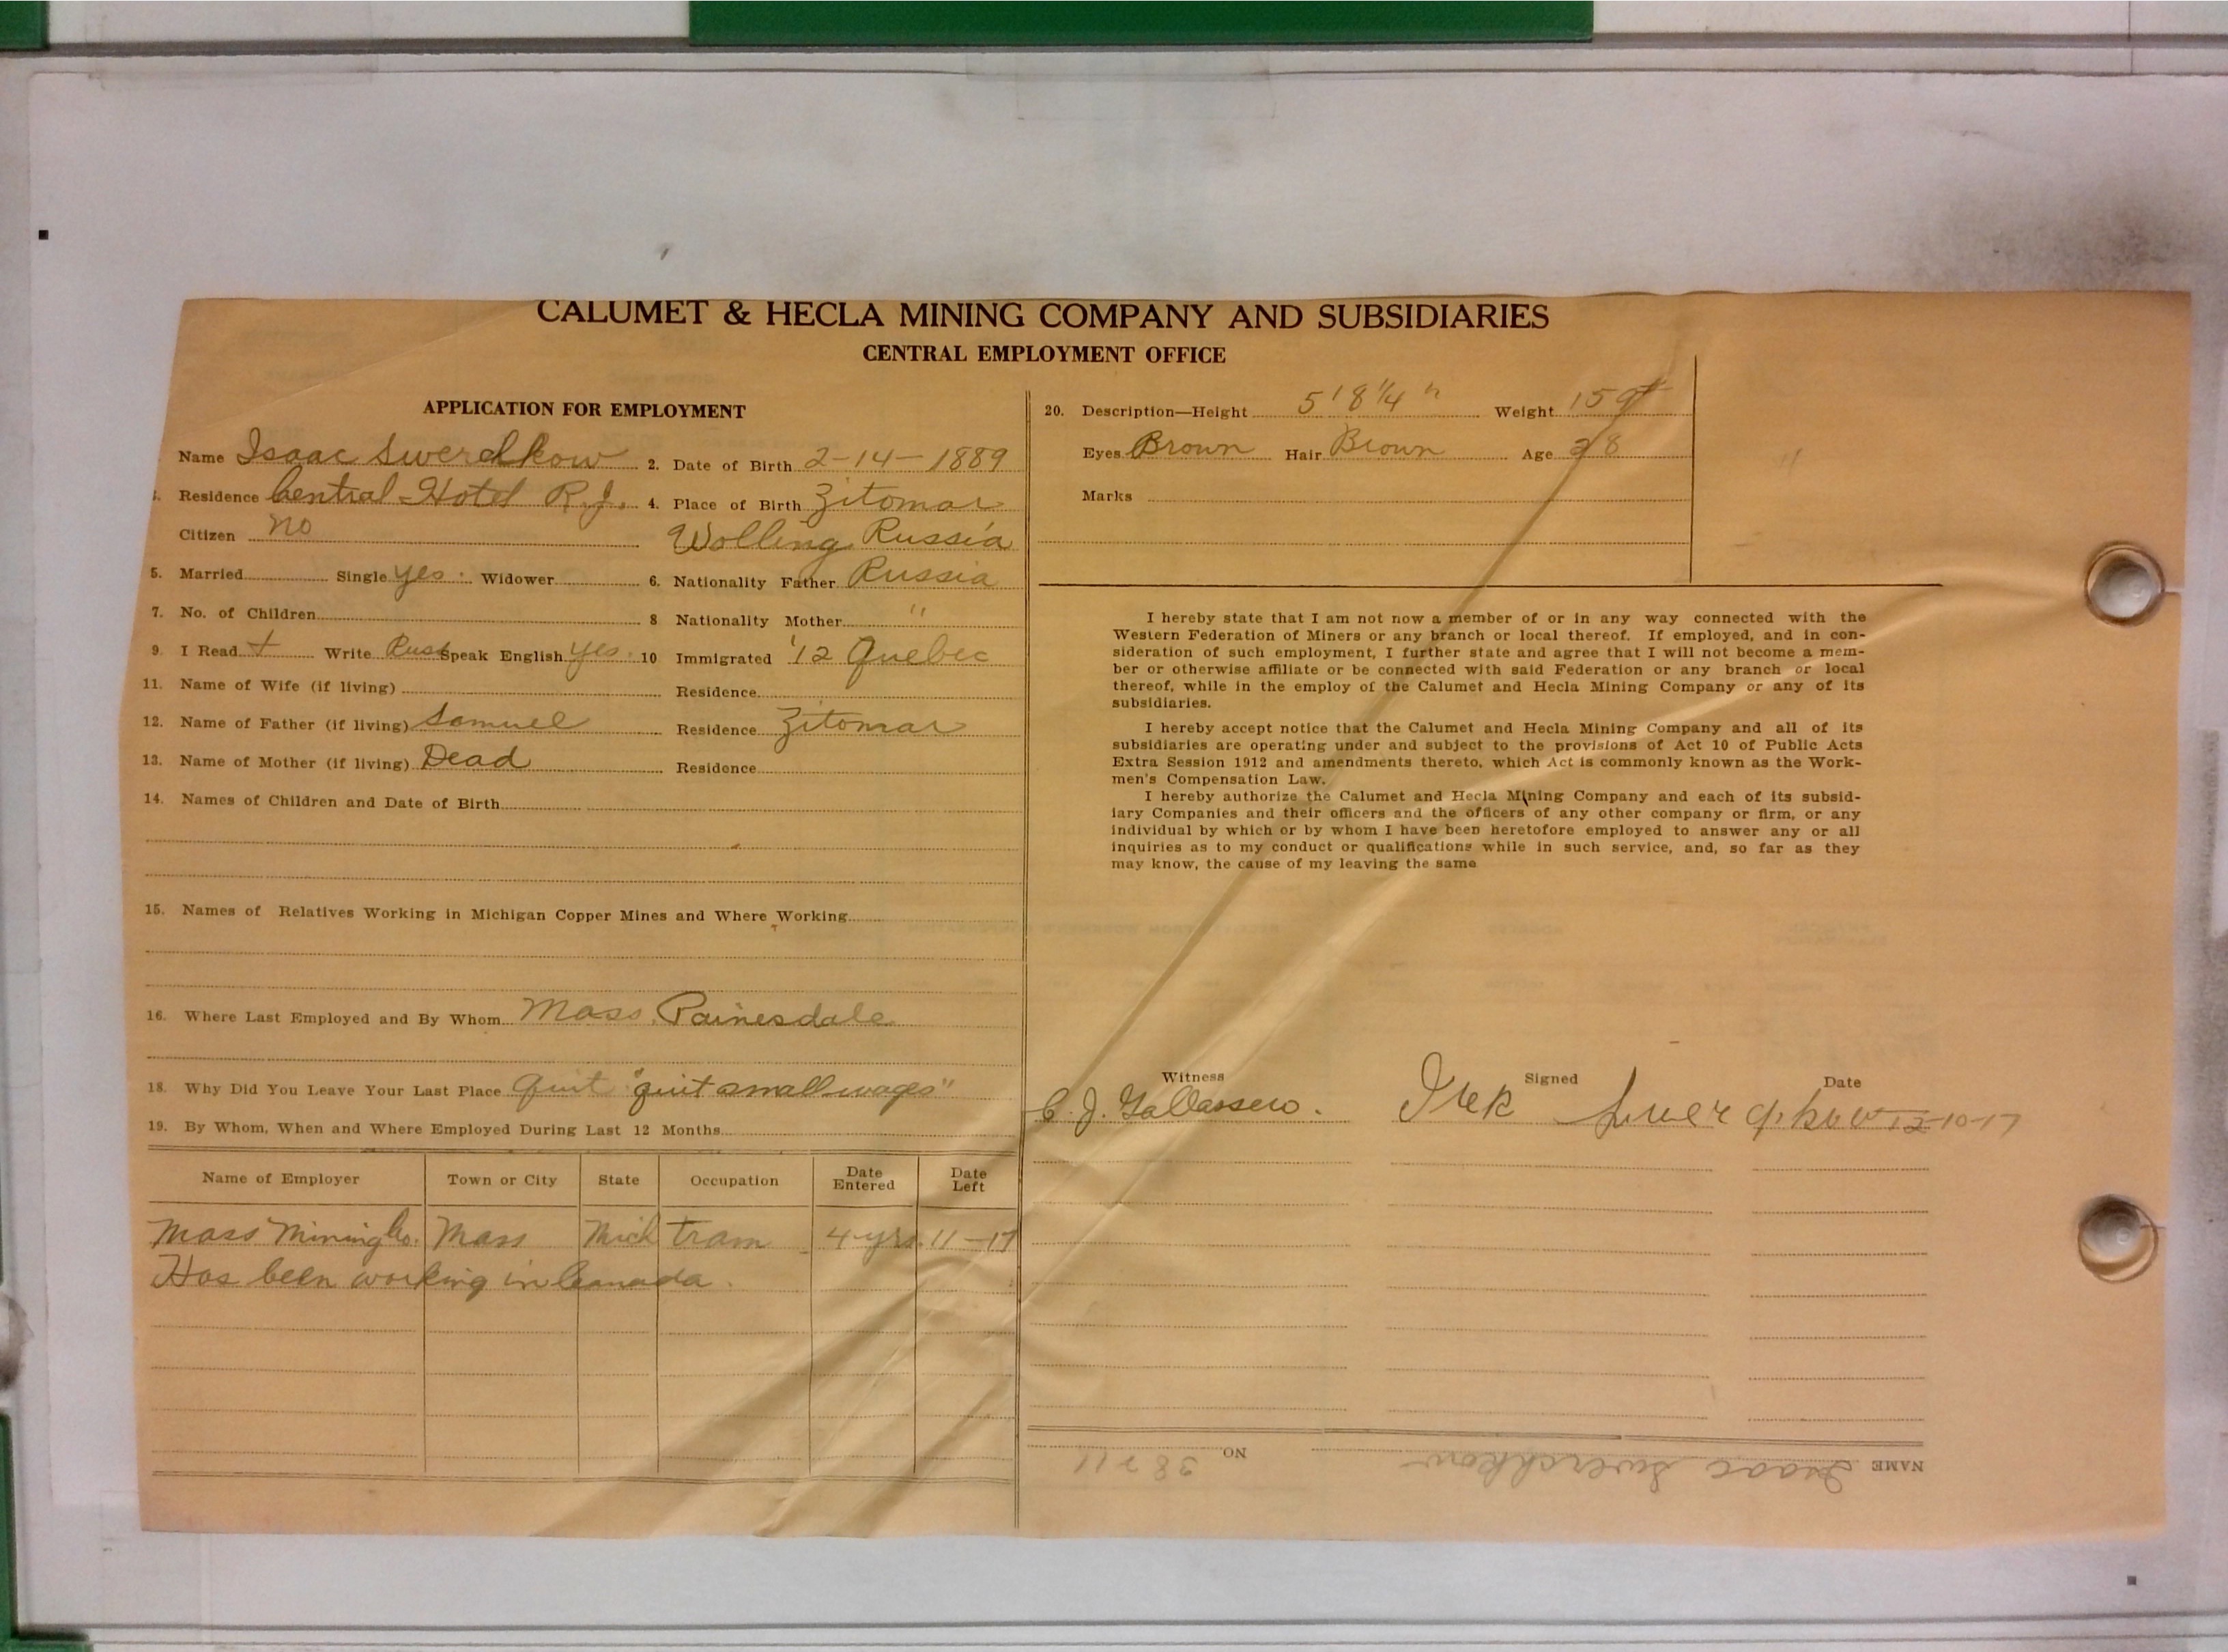 CALUMET & HECLA MINING COMPANY AND SUBSIDIARIES
CENTRAL EMPLOYMENT OFFICE
APPLICATION FOR EMPLOYMENT
Name Isaac Swerdkow 2. Date of Birth 2-14-1889
Residence Central Hotel R.J. 4. Place of Birth Zitomar
Citizen no Wolling Russia
5. Married Single yes. Widower 6. Nationality Father Russia
7. No. of Children 8 Nationality Mother "
9. I Read + Write Russ Speak English yes. 10 Immigrated '12 Quebec
11. Name of Wife (if living) Residence
12. Name of Father (if living) Samuel Residence Zitomar
13. Name of Mother (if living) Dead Residence
14. Names of Children and Date of Birth
15. Names of Relatives Working in Michigan Copper Mines and Where Working
16. Where Last Employed and By Whom Mass. Painesdale
18. Why Did You Leave Your Last Place Quit "quit small wages"
19. By Whom, When and Where Employed During Last 12 Months
Name of Employer Town or City State Occupation Date Entered Date Left
Mass Mining Co. Mass Mich tram 4 yrs. 11-17
Has been working in Canada.
20. Description—Height 5' 8 1/4" Weight 159#
Eyes Brown Hair Brown Age 28
Marks
I hereby state that I am not now a member of or in any way connected with the
Western Federation of Miners or any branch or local thereof. If employed, and in con-
sideration of such employment, I further state and agree that I will not become a mem-
ber or otherwise affiliate or be connected with said Federation or any branch or local
thereof, while in the employ of the Calumet and Hecla Mining Company or any of its
subsidiaries.
I hereby accept notice that the Calumet and Hecla Mining Company and all of its
subsidiaries are operating under and subject to the provisions of Act 10 of Public Acts
Extra Session 1912 and amendments thereto, which Act is commonly known as the Work-
men's Compensation Law.
I hereby authorize the Calumet and Hecla Mining Company and each of its subsid-
iary Companies and their officers and the officers of any other company or firm, or any
individual by which or by whom I have been heretofore employed to answer any or all
inquiries as to my conduct or qualifications while in such service, and, so far as they
may know, the cause of my leaving the same
Witness Signed Date
C. J. 12-10-17
NAME Isaac Swerdkow NO 38711